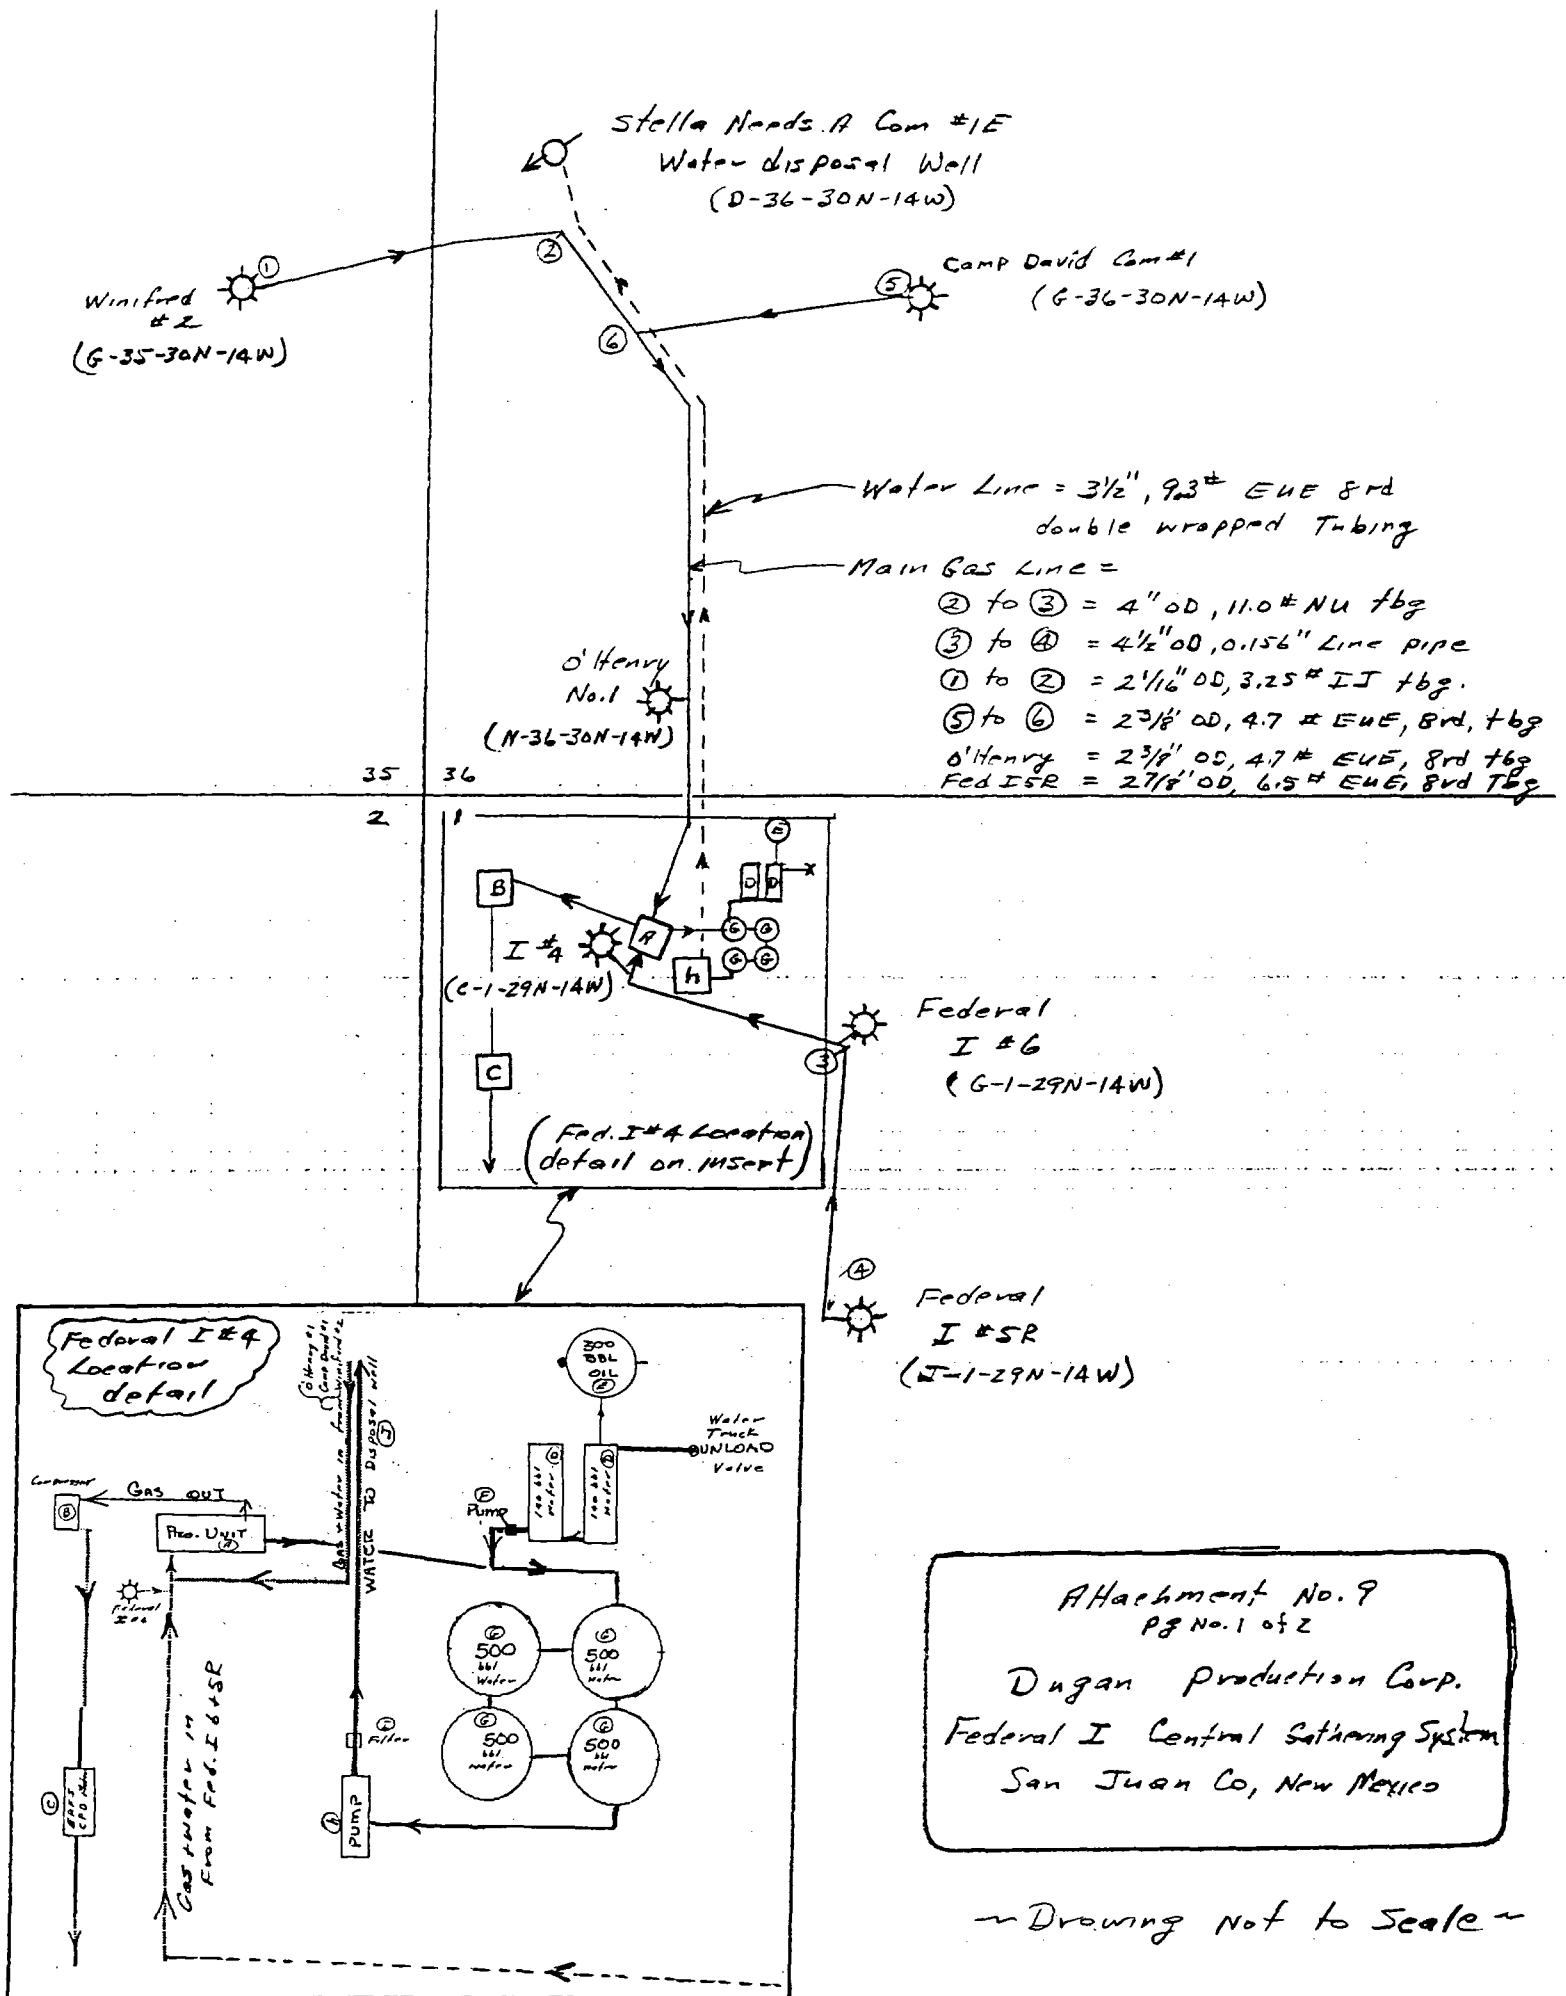 Stella Needs A Com #1E
Water disposal Well
(D-36-30N-14W)
①
②
Winifred
#2
(G-35-30N-14W)
⑤
Camp David Com #1
(G-36-30N-14W)
⑥
Water Line = 3½", 9.3# EUE 8rd
double wrapped Tubing
Main Gas Line =
② to ③ = 4" OD, 11.0# NU tbg
③ to ④ = 4½" OD, 0.156" Line pipe
① to ② = 2 1/16" OD, 3.25# IJ tbg.
⑤ to ⑥ = 2 3/8" OD, 4.7 # EUE, 8rd, tbg
O'Henry = 2 3/8" OD, 4.7 # EUE, 8rd tbg
Fed I5R = 2 7/8" OD, 6.5# EUE, 8rd Tbg
O'Henry
No.1
(N-36-30N-14W)
35 36
2 1
E
B
D D
A
G G
I #4
h
G G
(C-1-29N-14W)
C
③
Federal
I #6
(G-1-29N-14W)
(Fed. I#4 Location
detail on insert)
④
Federal
I #5R
(J-1-29N-14W)
Federal I #4
Location
detail
O'Henry #1
Camp David #1
Winifred #2
Gas + Water in from
WATER TO Disposal Well
J
300
BBL
OIL
E
Water
Truck
UNLOAD
Valve
140 bbl
Water
D
140 bbl
Water
D
F
Pump
Compressor
B
GAS OUT
Pro. UNIT
A
Federal
I #4
Gas + Water in
From Fed. I 6+5R
G
500
bbl
Water
G
500
bbl
Water
G
500
bbl
water
G
500
bbl
water
I
Filter
h
PUMP
C
CPD
Attachment No. 9
pg No. 1 of 2
Dugan Production Corp.
Federal I Central Gathering System
San Juan Co, New Mexico
~ Drawing Not to Scale ~